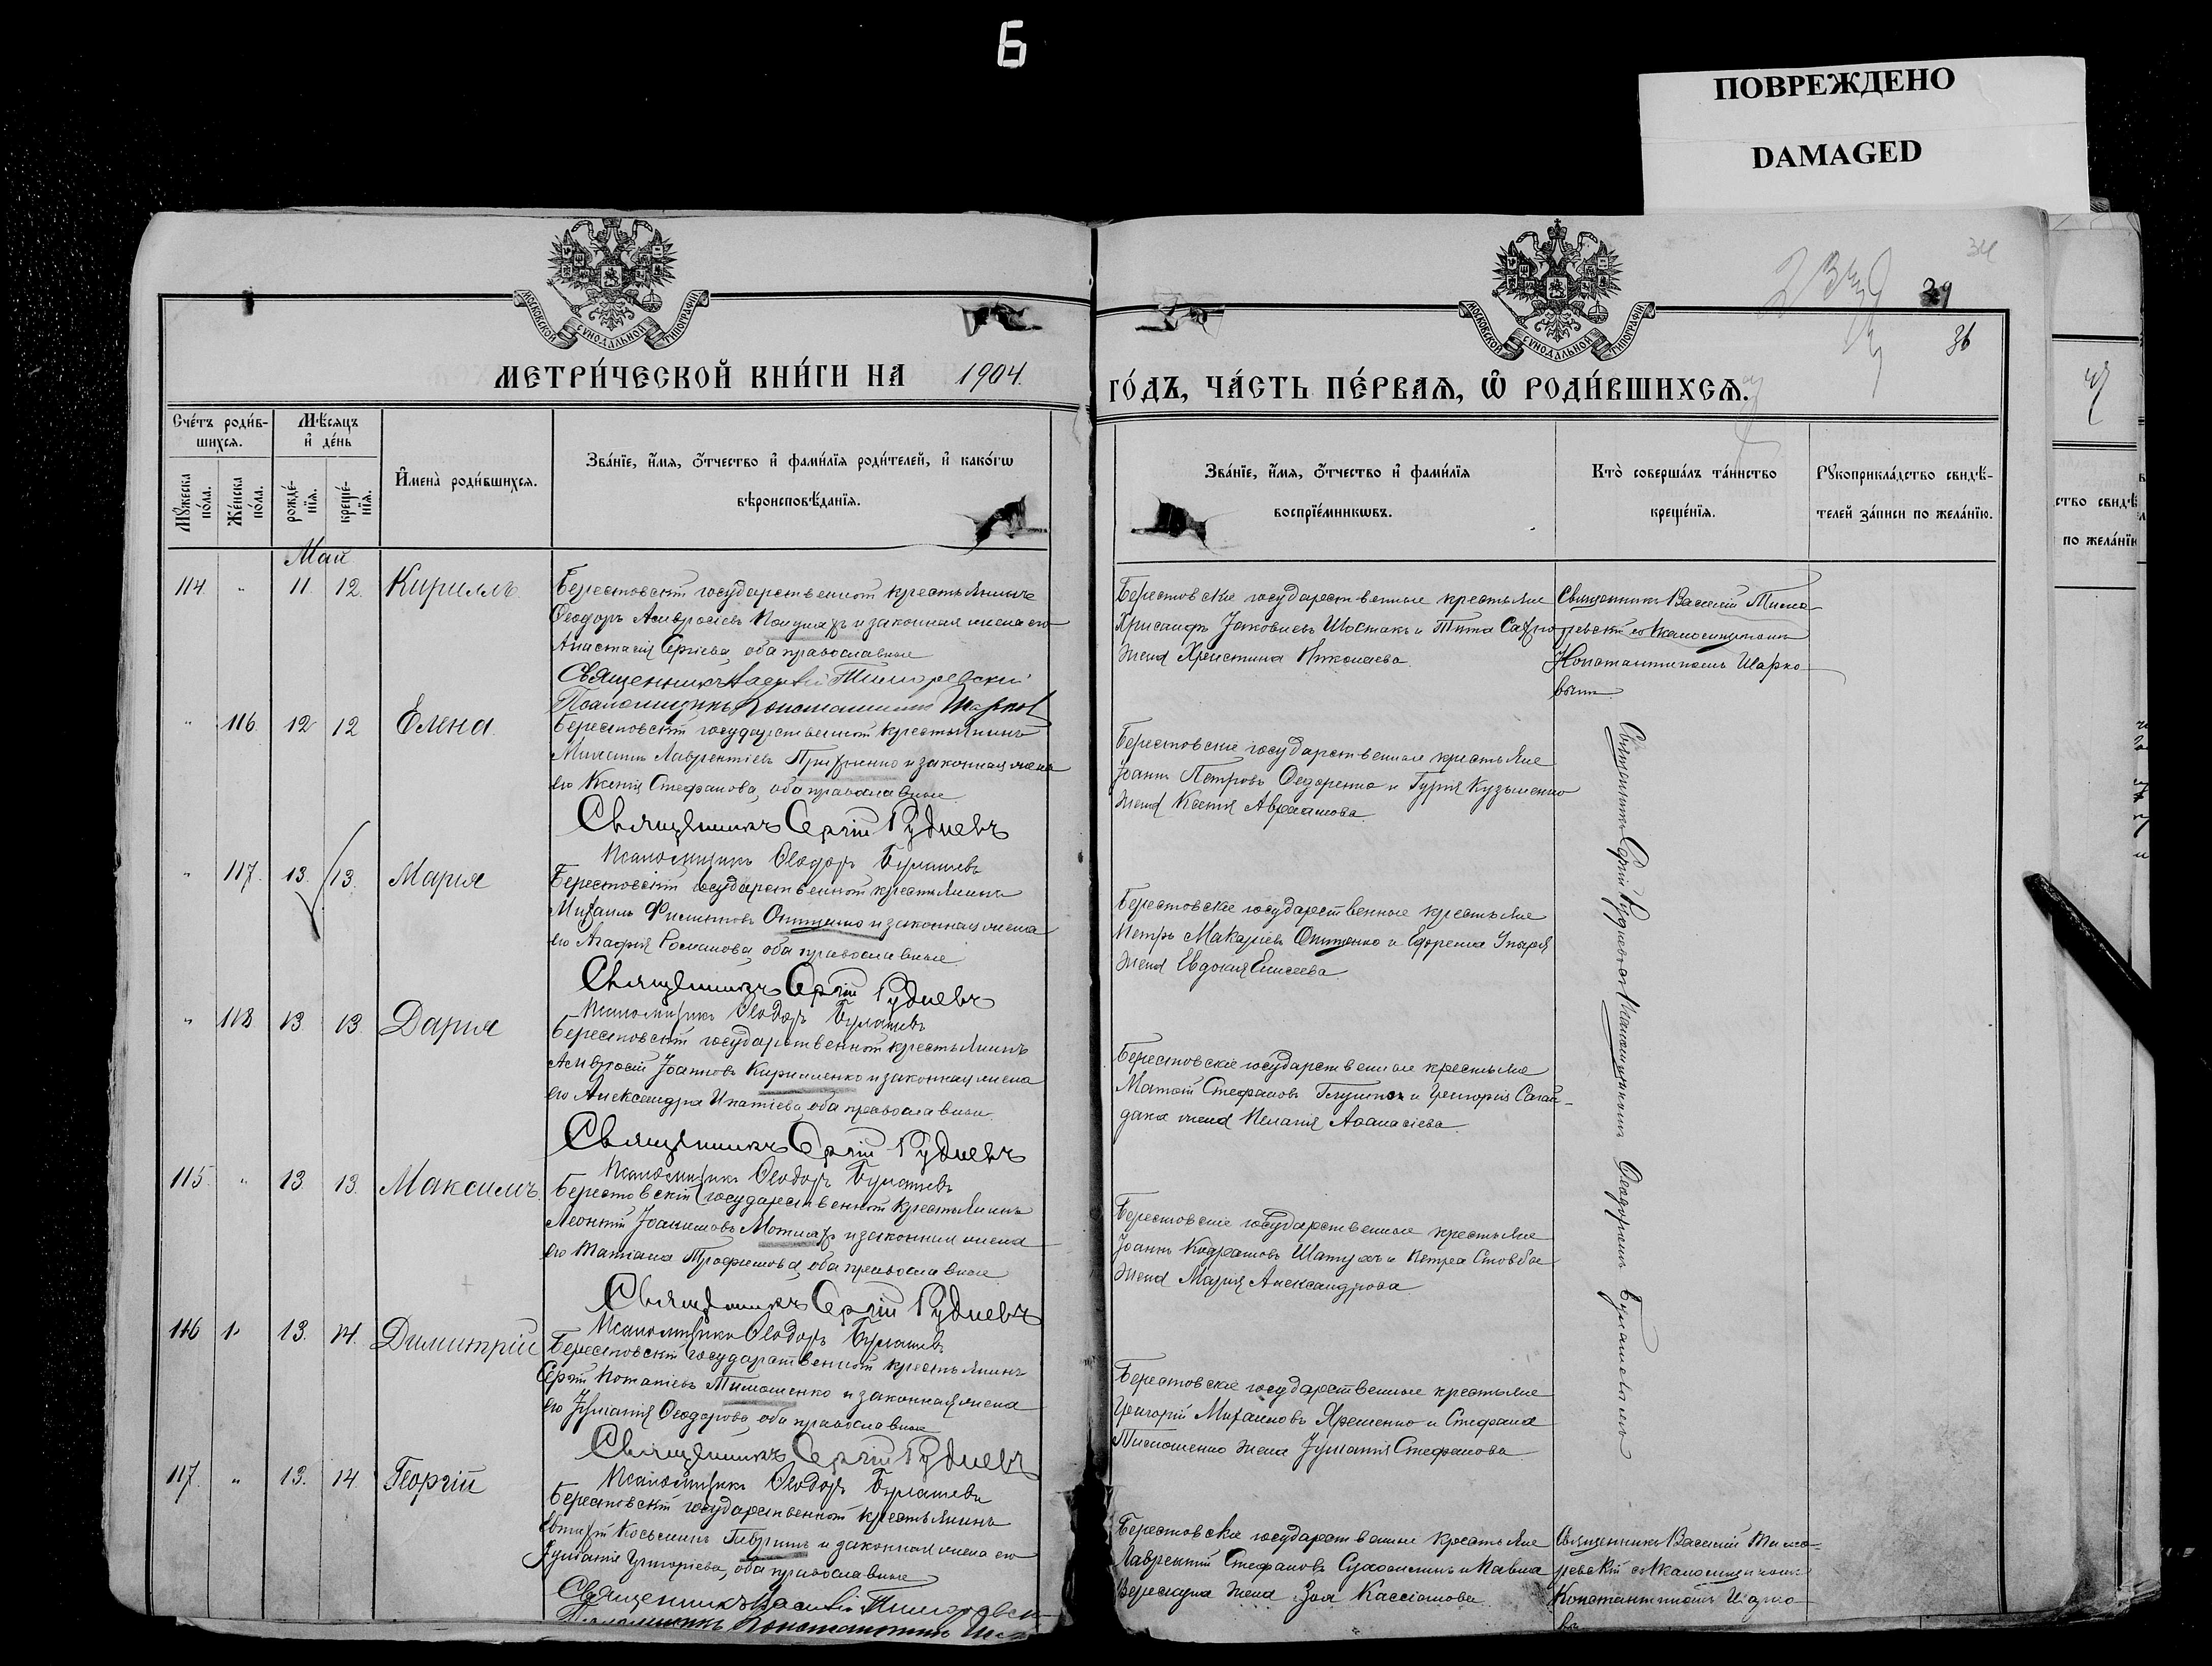 Б
ПОВРЕЖДЕНО
DAMAGED
34
29
36
МОСКОВСКОЙ СѴНОДАЛЬНОЙ ТИПОГРАФІИ
МОСКОВСКОЙ СѴНОДАЛЬНОЙ ТИПОГРАФІИ
МЕТРИ́ЧЕСКОЙ КНИ́ГИ НА 1904.
ГО́ДЪ, ЧА́СТЬ ПЕ́РВАЯ, Ѿ РОДИ́ВШИХСЯ.
Сче́тъ роди́в-
шихся.
Мꙋ́жеска по́ла.
Же́нска по́ла.
Мѣ́сяцъ и҆ де́нь
рожде́-нїя.
креще́-нїя.
И҆мена̀ роди́вшихся.
Зва́нїе, и҆́мя, о҆́тчество и҆ фами́лїя роди́телей, и҆ како́гѡ
вѣроисповѣ́данїя.
Зва́нїе, и҆́мя, о҆́тчество и҆ фами́лїя
воспрїе́мникѡвъ.
Кто̀ соверша́лъ та́инство
креще́нїя.
Рꙋкоприкла́дство свидѣ́-
телей за́писи по жела́нїю.
ство свидѣ́
по жела́нїю
Май
114. " 11. 12. Кириллъ
Берестовскій государственный крестьянинъ
Ѳеодоръ Амвросіевъ и законная жена его
Анастасія Сергіева, оба православные
Священникъ Василій Тиморевскій
Псаломщикъ Константинъ Шарков
Берестовскіе государственные крестьяне
Хрисанфъ Іаковлевъ Шостакъ и Тита
жена Христина Николаева.
Священникъ Василій Тимо-
ревскій съ псаломщикомъ
Константиномъ Шарко-
вымъ
" 116. 12 12 Елена
Берестовскій государственный крестьянинъ
Михаилъ Лаврентіевъ и законная жена
его Ксенія Стефанова, оба православные
Священникъ Сергій Рудневъ
Псаломщикъ Ѳеодоръ Булашевъ
Берестовскіе государственные крестьяне
Іоаннъ Петровъ Федоренко и Гурія Кузьменко
жена Ксенія Авраамова.
Священникъ Сергій Рудневъ съ псаломщикомъ Ѳеодоромъ Булашевымъ
" 117. 13. 13. Мария
Берестовскій государственный крестьянинъ
Михаилъ Филипповъ Онищенко и законная жена
его Агафія Романова, оба православные
Священникъ Сергій Рудневъ
Псаломщикъ Ѳеодоръ Булашевъ
Берестовскіе государственные крестьяне
Петръ Макаріевъ Онищенко и Ефрема
жена Евдокія Елисеева.
" 118 13 13 Дария
Берестовскій государственный крестьянинъ
Амвросій Іоанновъ Кириленко и законная жена
его Александра Ипатіева, оба православные
Священникъ Сергій Рудневъ
Псаломщикъ Ѳеодоръ Булашевъ
Берестовскіе государственные крестьяне
Стефановъ и Григорія Сагай-
дака жена Пелагія Аѳанасіева.
115. " 13 13. Максимъ
Берестовскій государственный крестьянинъ
Леонтій и законная жена
его Татіана Трофимова, оба православные
Священникъ Сергій Рудневъ
Псаломщикъ Ѳеодоръ Булашевъ
Берестовскіе государственные крестьяне
Іоаннъ и Петра Стовбы
жена Марія Александрова
116 13. 14. Димитрій
Берестовскій государственный крестьянинъ
Сергій Потапіевъ Тимошенко и законная жена
его Іуліанія Ѳеодорова, оба православные
Священникъ Сергій Рудневъ
Псаломщикъ Ѳеодоръ Булашевъ
Берестовскіе государственные крестьяне
Григорій Михаиловъ Яременко и Стефана
Тимошенко жена Іуліанія Стефанова
117. " 13. 14. Георгій
Берестовскій государственный крестьянинъ
Евтихій Косьминъ и законная жена его
Іуліанія Григоріева, оба православные
Священникъ Василій Тиморевскій
Псаломщикъ Константинъ
Берестовскіе государственные крестьяне
Лаврентій Стефановъ и Павла
жена Зоя Кассіанова.
Священникъ Василій Тимо-
ревскій съ псаломщикомъ
Константиномъ Шарко-